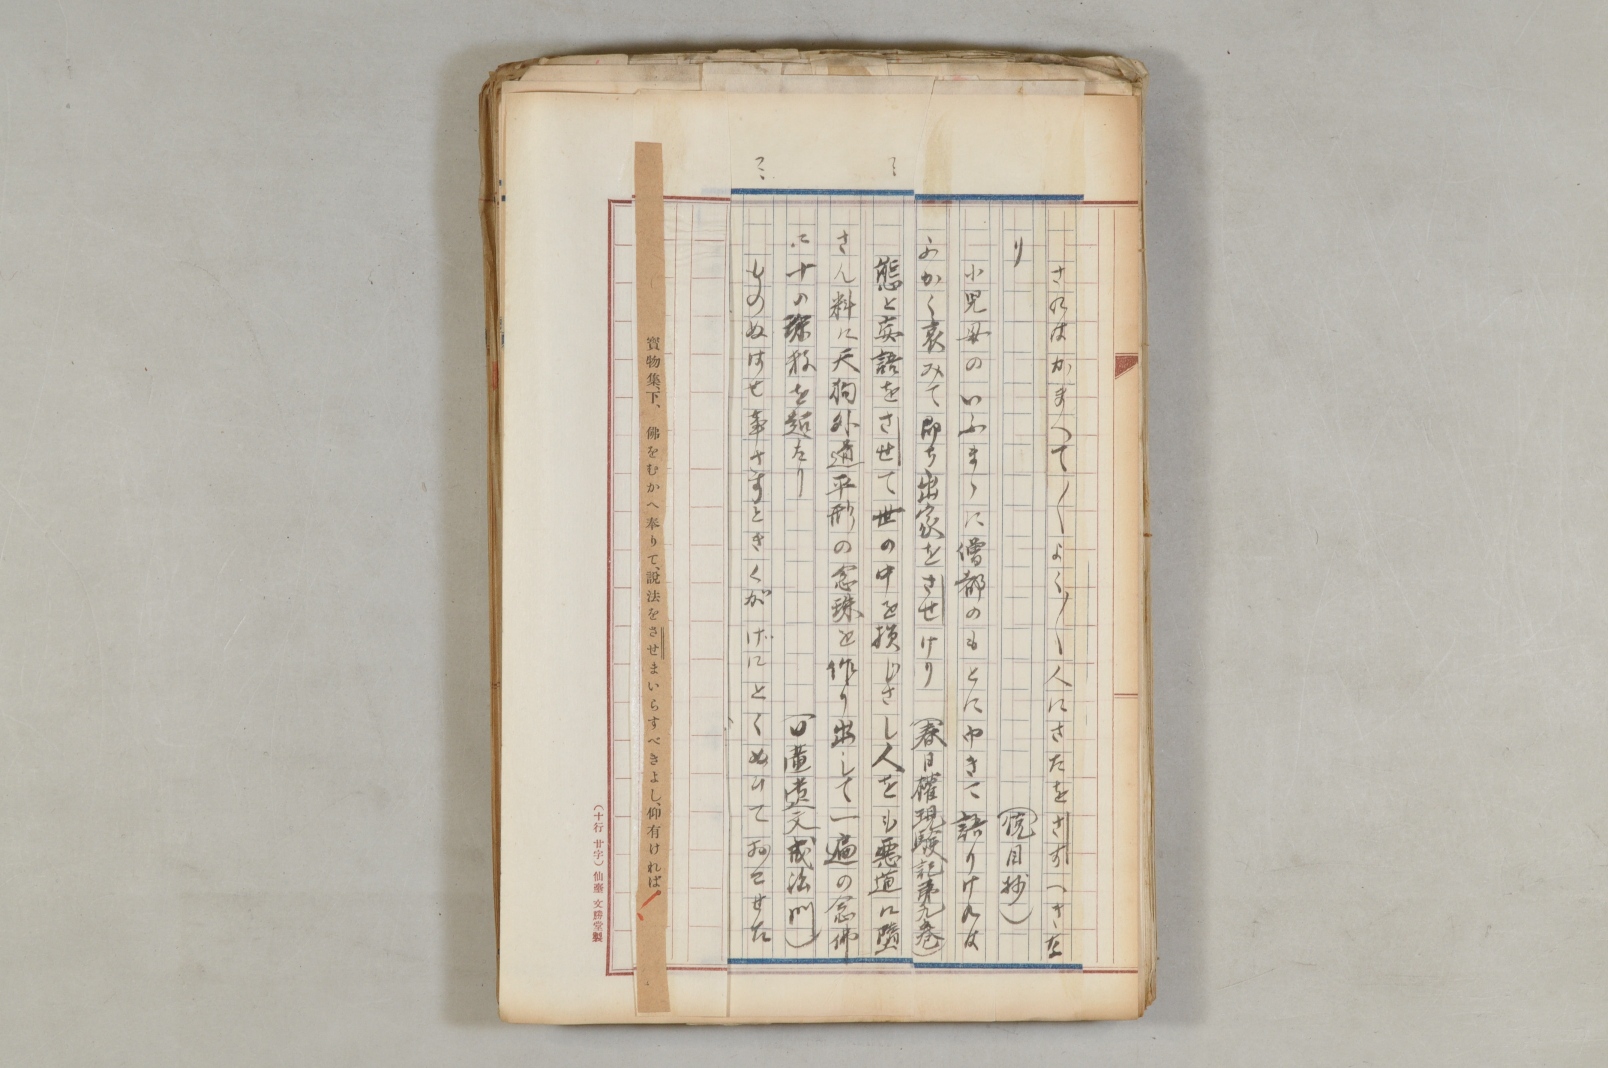 さればかまへて〳〵よく〳〵人にさたをさすへきな
り　（傍目抄）
小児母のいふまゝに僧都のもとにゆきて語りけれは
ふかく哀みて即ち出家をさせけり　（春日権現験記第九巻）
態と妄語をさせて世の中を損じさし人をも悪道に墮
さん料に天狗外道平形の念珠を作り出して一遍の念佛
に十の珠数を超たり　（日蓮遺文戒法門）
ものぬはせ事さすときくが　げにとくぬひておこせた
寳物集、下、　佛をむかへ奉りて、説法をさせまいらすべきよし、仰有ければ
（十行　廿字）仙臺　文勝堂製